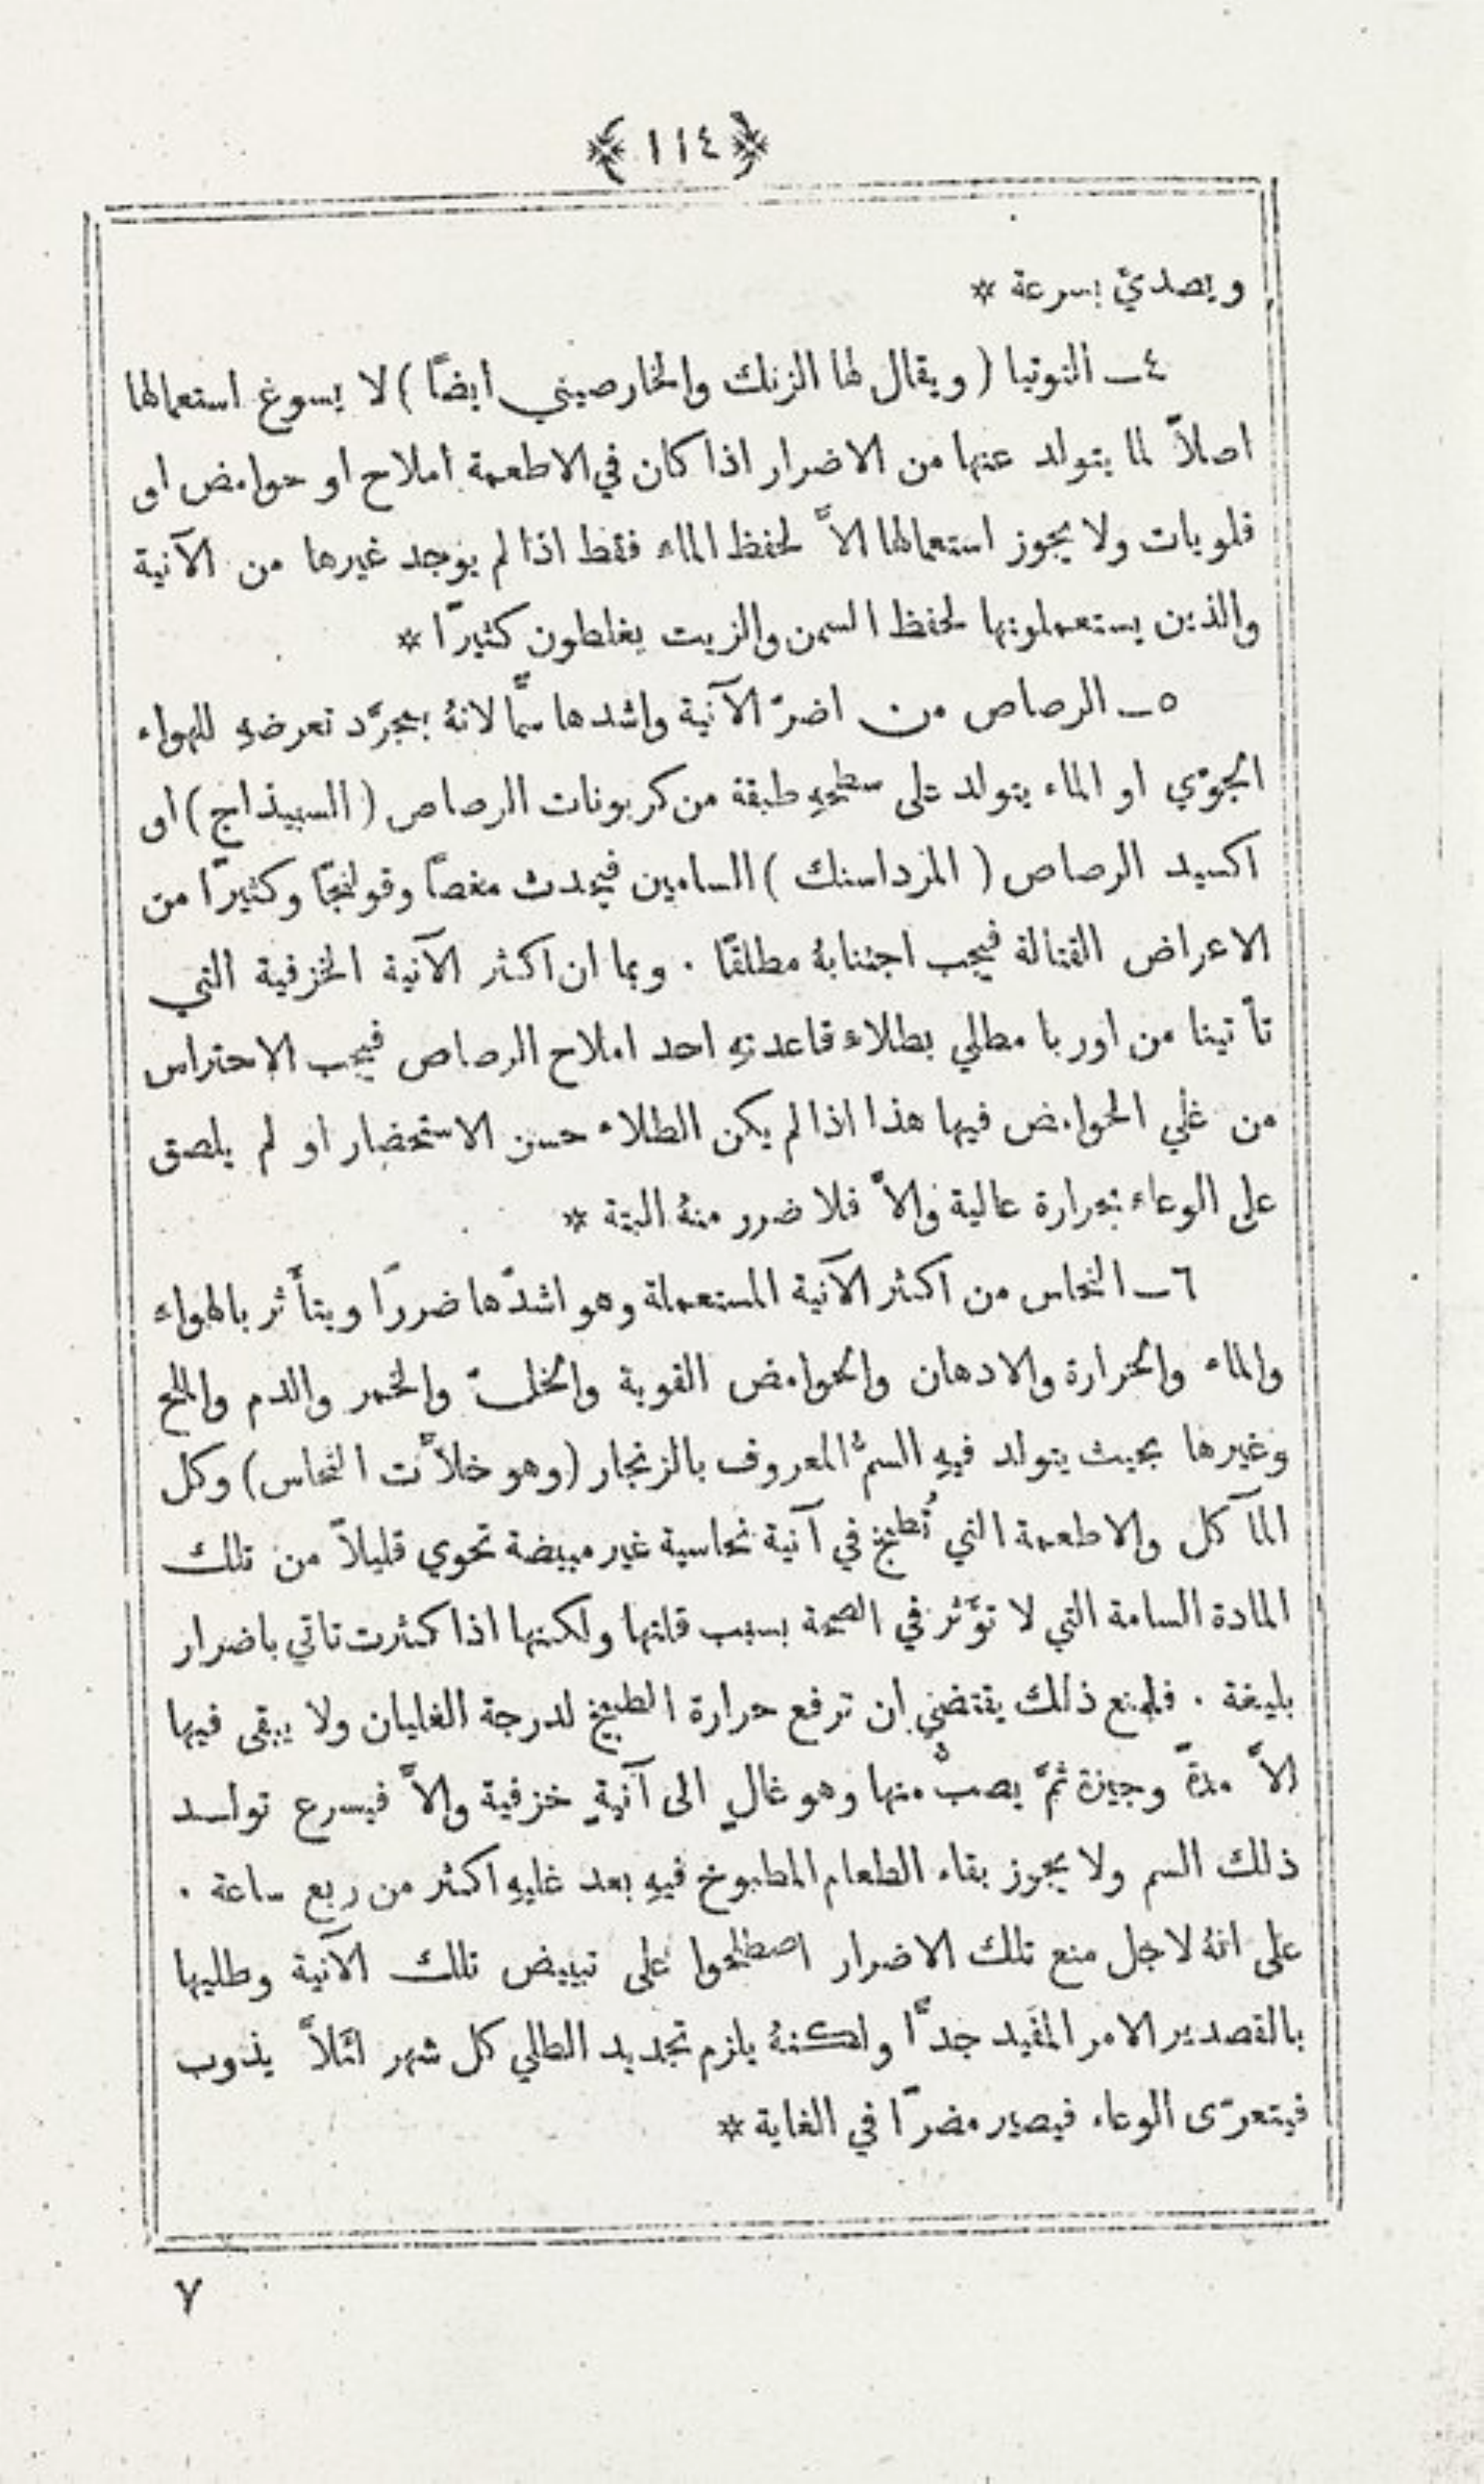 ﴿ ١١٤ ﴾
ويصدئ بسرعة *
٤ـ التوتيا ( ويقال لها الزنك والخارصيني ايضًا ) لا يسوغ استعمالها
اصلاً لما يتولد عنها من الاضرار اذا كان في الاطعمة املاح او حوامض او
قلويات ولا يجوز استعمالها الاَّ لحفظ الماء فقط اذا لم يوجد غيرها من الآنية
والذين يستعملونها لحفظ السمن والزيت يغلطون كثيرًا *
٥ـ الرصاص من اضرّ الآنية واشدها سمًّا لانهُ بمجرَّد تعرضهِ للهواء
الجوّي او الماء يتولد على سطحهِ طبقة من كربونات الرصاص ( السبيذاج ) او
اكسيد الرصاص ( المرداسنك ) السامين فيحدث مغصًا وقولنجًا وكثيرًا من
الاعراض القتالة فيجب اجتنابهُ مطلقًا . وبما ان اكثر الآنية الخزفية التي
تأتينا من اوربا مطلي بطلاء قاعدتهِ احد املاح الرصاص فيجب الاحتراس
من غلي الحوامض فيها هذا اذا لم يكن الطلاء حسن الاستحضار او لم يلصق
على الوعاء بحرارة عالية والاَّ فلا ضرر منهُ البتة *
٦ـ النحاس من اكثر الآنية المستعملة وهو اشدّها ضررًا ويتأثر بالهواء
والماء والحرارة والادهان والحوامض القوية والخلّ والخمر والدم والملح
وغيرها بحيث يتولد فيهِ السمُّ المعروف بالزنجار (وهو خلاَّت النحاس) وكل
المآكل والاطعمة التي تُطبخ في آنية نحاسية غير مبيضة تحوي قليلاً من تلك
المادة السامة التي لا تؤَثر في الصحة بسبب قلتها ولكنها اذا كثرت تاتي باضرار
بليغة . فلمنع ذلك يقتضي ان ترفع حرارة الطبيخ لدرجة الغليان ولا يبقى فيها
الاَّ مدةً وجيزة ثمَّ يصبُّ منها وهو غالٍ الى آنيةٍ خزفية والاَّ فيسرع تولد
ذلك السم ولا يجوز بقاء الطعام المطبوخ فيهِ بعد غليهِ اكثر من ربع ساعة .
على انهُ لاجل منع تلك الاضرار اصطلحوا على تبييض تلك الآنية وطليها
بالقصدير الامر المفيد جدًّا ولكنهُ يلزم تجديد الطلي كل شهر لئلاَّ يذوب
فيتعرّى الوعاء فيصير مضرًّا في الغاية *
٧